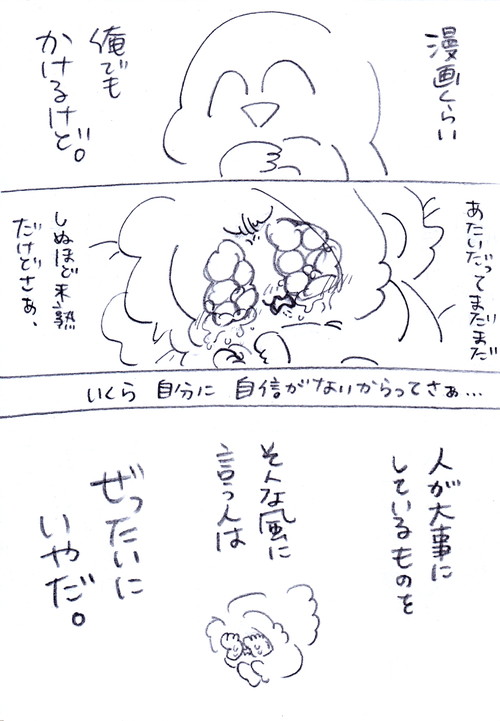 漫画くらい
俺でも
かけるけど。
あたいだってまだまだ
しぬほど未熟
だけどさぁ、
いくら 自分に 自信がないからってさぁ…
人が大事に
しているものを
そんな風に
言う人は
ぜったいに
いやだ。